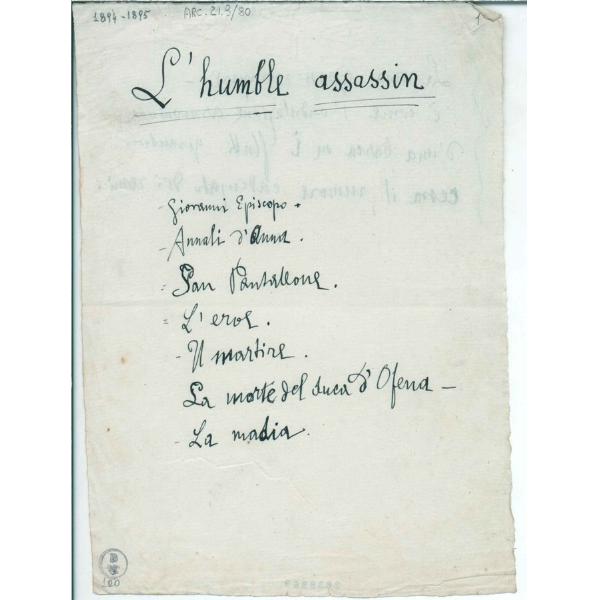 1894-1895 ARC. 21.9/80 1
L'humble assassin
- Giovanni Episcopo.
- Annali d'Anna.
- San Pantaleone.
= L'eroe.
- Il martire.
La morte del duca d'Ofena -
- La madia.